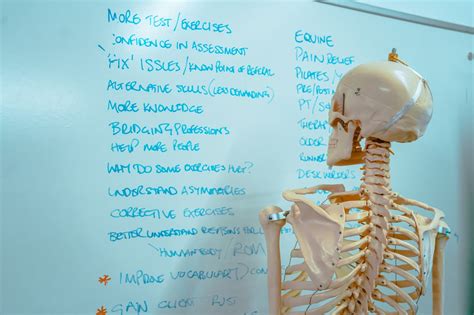 MORE TEST/EXERCISES
CONFIDENCE IN ASSESSMENT
'FIX' ISSUES/KNOW POINT OF REFERRAL
ALTERNATIVE SKILLS (LESS DEMANDING)
MORE KNOWLEDGE
BRIDGING PROFESSIONS
HELP MORE PEOPLE
WHY DO SOME EXERCISES HURT?
UNDERSTAND ASYMMETRIES
CORRECTIVE EXERCISES
BETTER UNDERSTAND REASONS
HUMAN BODY / ROM
* IMPROVE VOCABULARY
* GAIN
EQUINE
PAIN RELIEF
PILATES/
PRE/POST
PT/S
THERAP
OLDER
RUNNER
DESK WORKERS